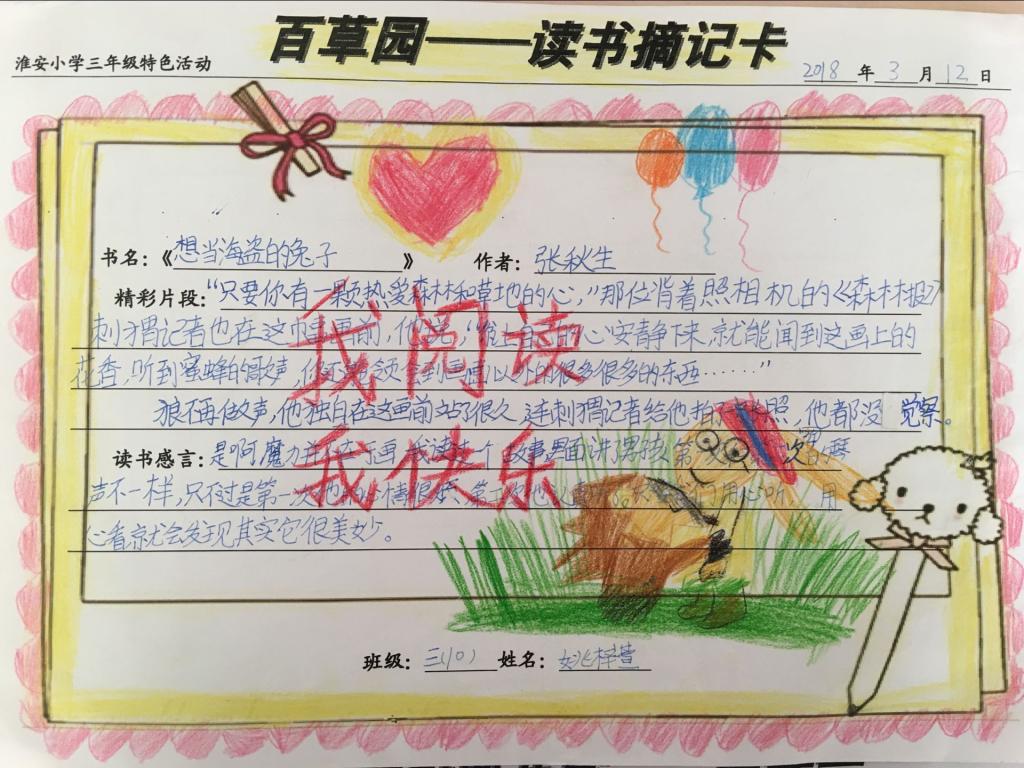 百草园——读书摘记卡
淮安小学三年级特色活动
2018 年 3 月 12 日
书名：《想当海盗的兔子》 作者：张秋生
精彩片段：“只要你有一颗热爱森林和草地的心，”那位背着照相机的《森林报》
刺猬记者也在这画前，他说，“心安静下来，就能闻到这画上的
花香，听到蜜蜂的歌声，很多很多的东西……”
狼不再做声，他独自在这画前站了很久，连刺猬记者给他拍照，他都没觉察。
读书感言：是啊魔力 我读 故事里面讲男孩第 琴
声不一样，只不过是第一次他的心情很 用心听，用
心看就会发现其实它很美妙。
我阅读
我快乐
班级：三(10) 姓名：姚梓萱